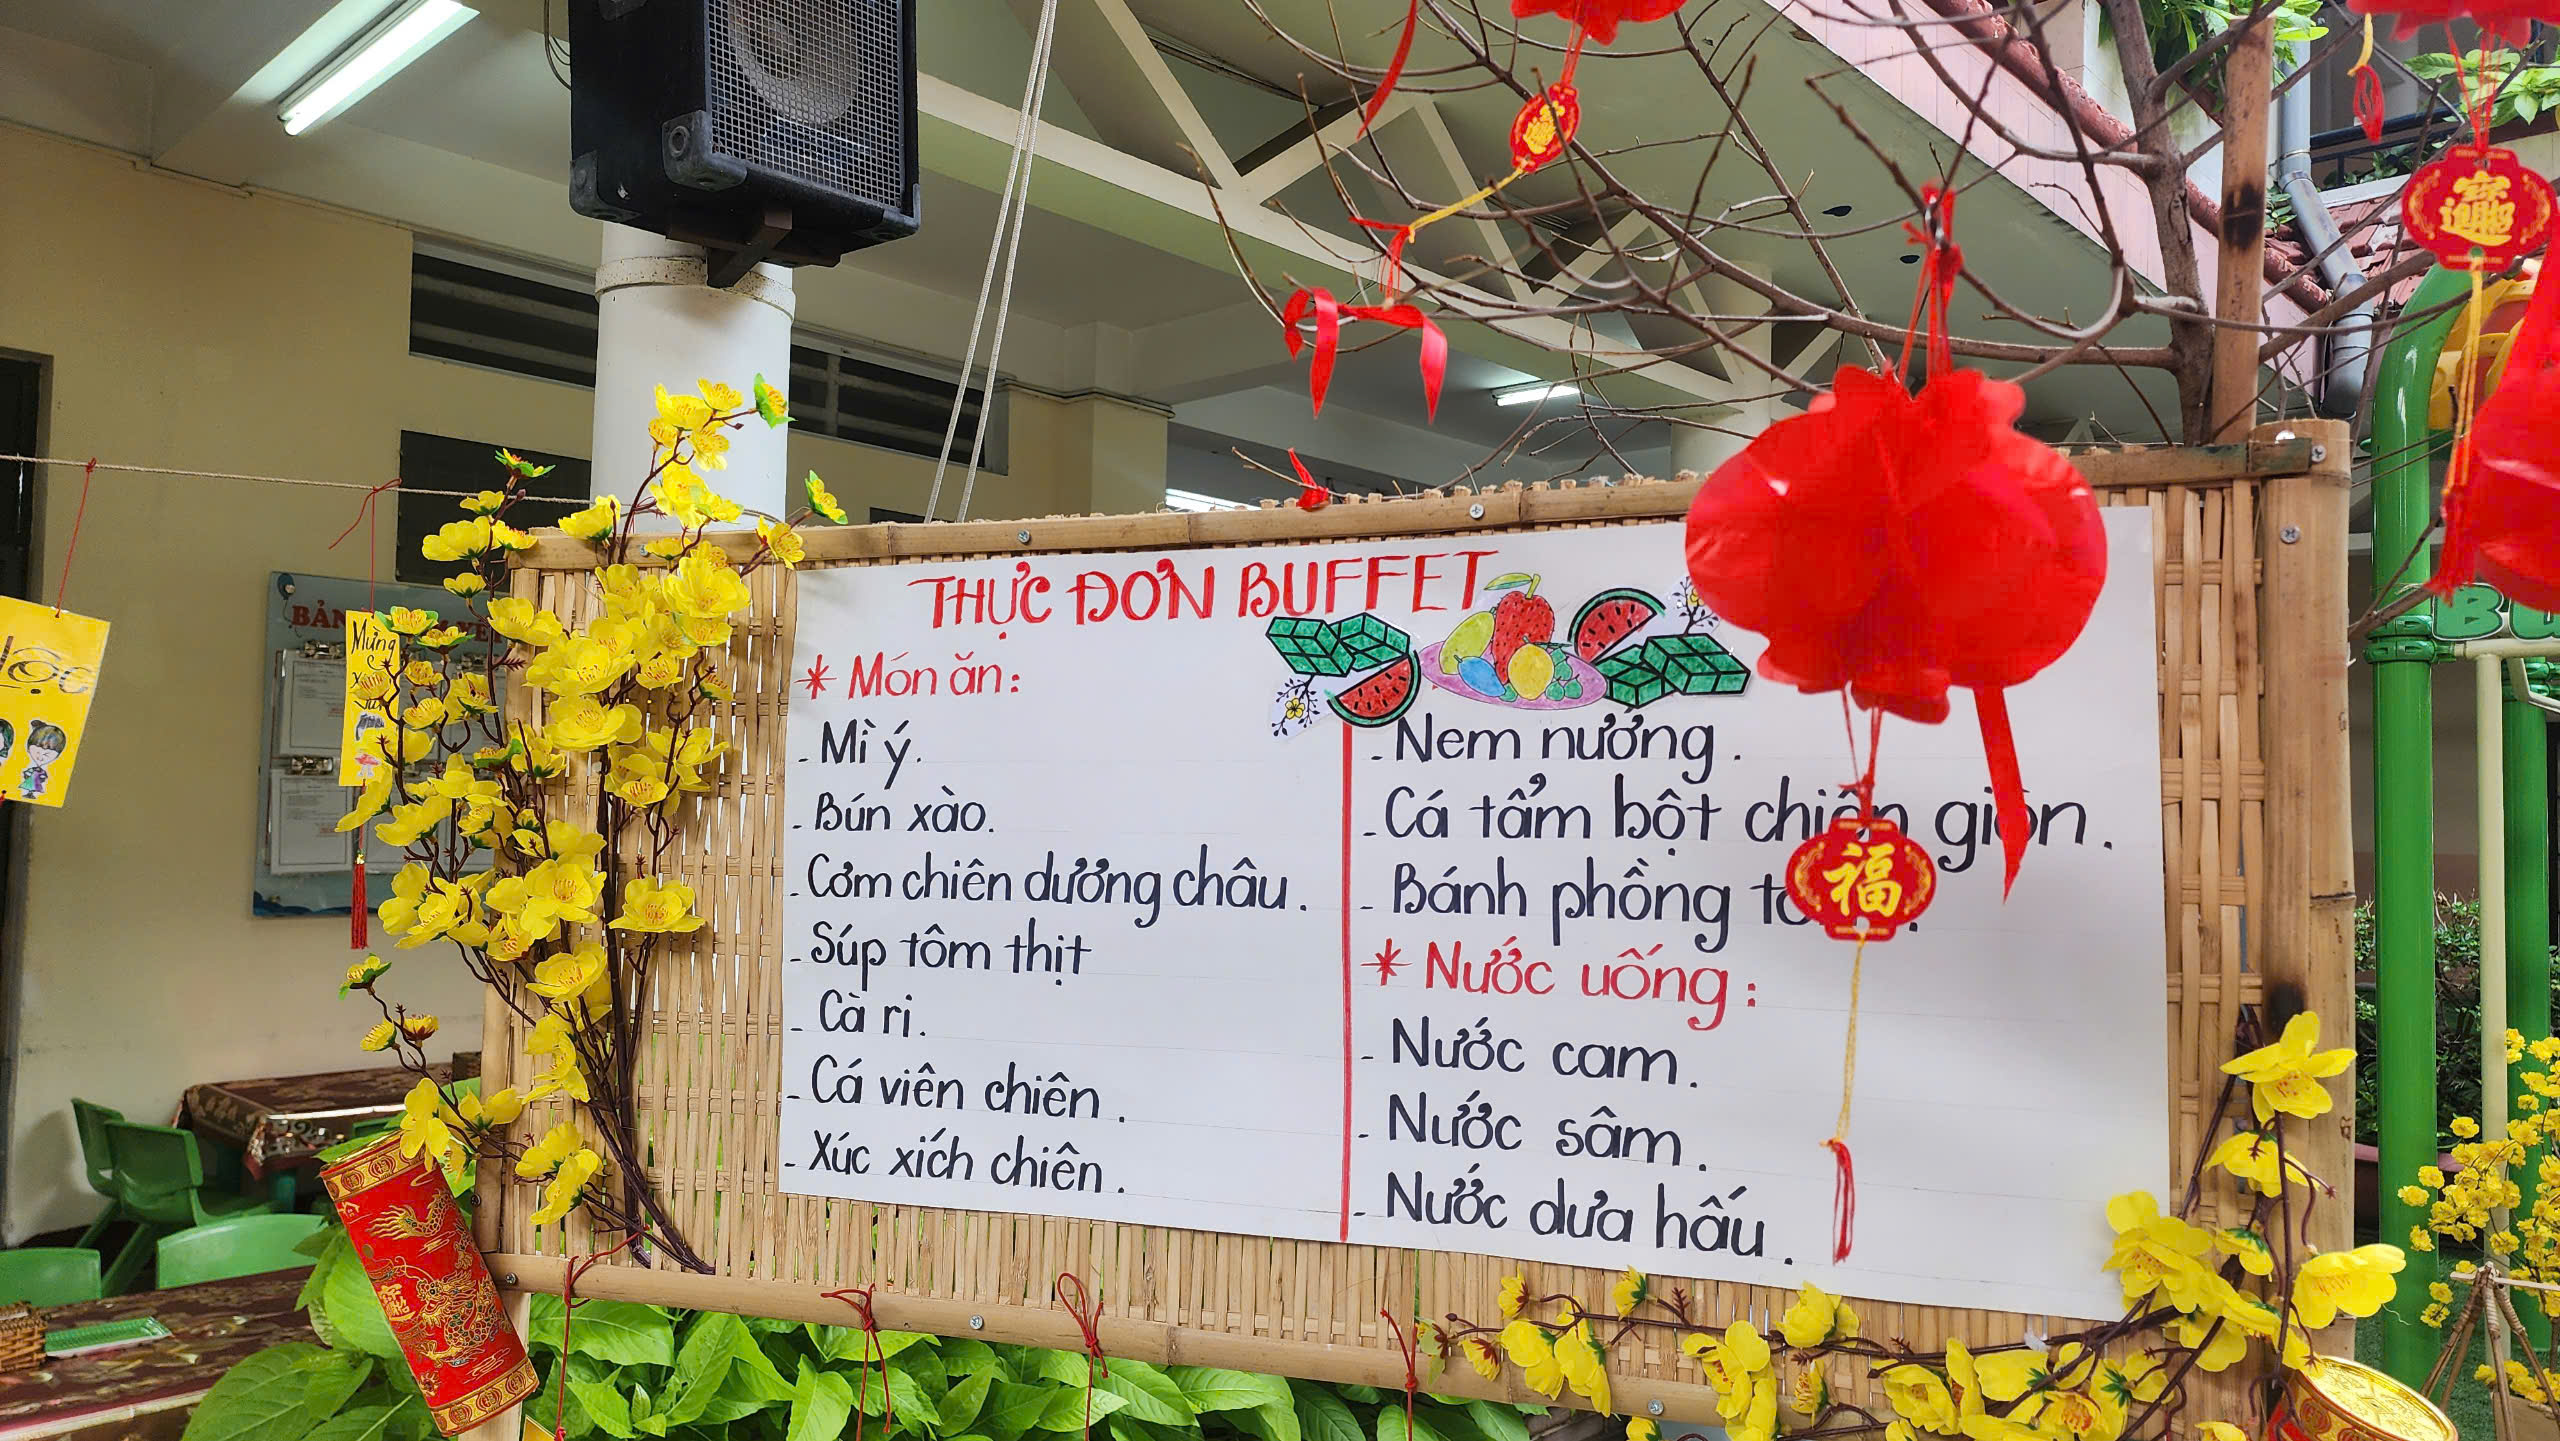 THỰC ĐƠN BUFFET
* Món ăn:
- Mì ý.
- Bún xào.
- Cơm chiên dương châu.
- Súp tôm thịt
- Cà ri.
- Cá viên chiên.
- Xúc xích chiên.
- Nem nướng.
- Cá tẩm bột chiên giòn.
- Bánh phồng
* Nước uống:
- Nước cam.
- Nước sâm.
- Nước dưa hấu.
福
Lộc
Mừng
BẢN